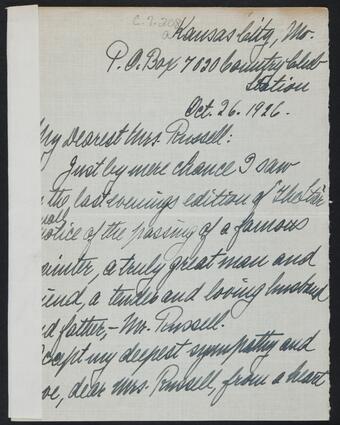 C.2.208
Kansas City, Mo.
P.O. Box 7020 Country Club
Station
Oct. 26. 1926.
My Dearest Mrs. Russell:
Just by mere chance I saw
the last evenings edition of "The Star
small
notice of the passing of a famous
ainter, a truly great man and
iend, a tender and loving husband
d father, - Mr. Russell.
ccept my deepest sympathy and
ve, dear Mrs. Russell, from a heart